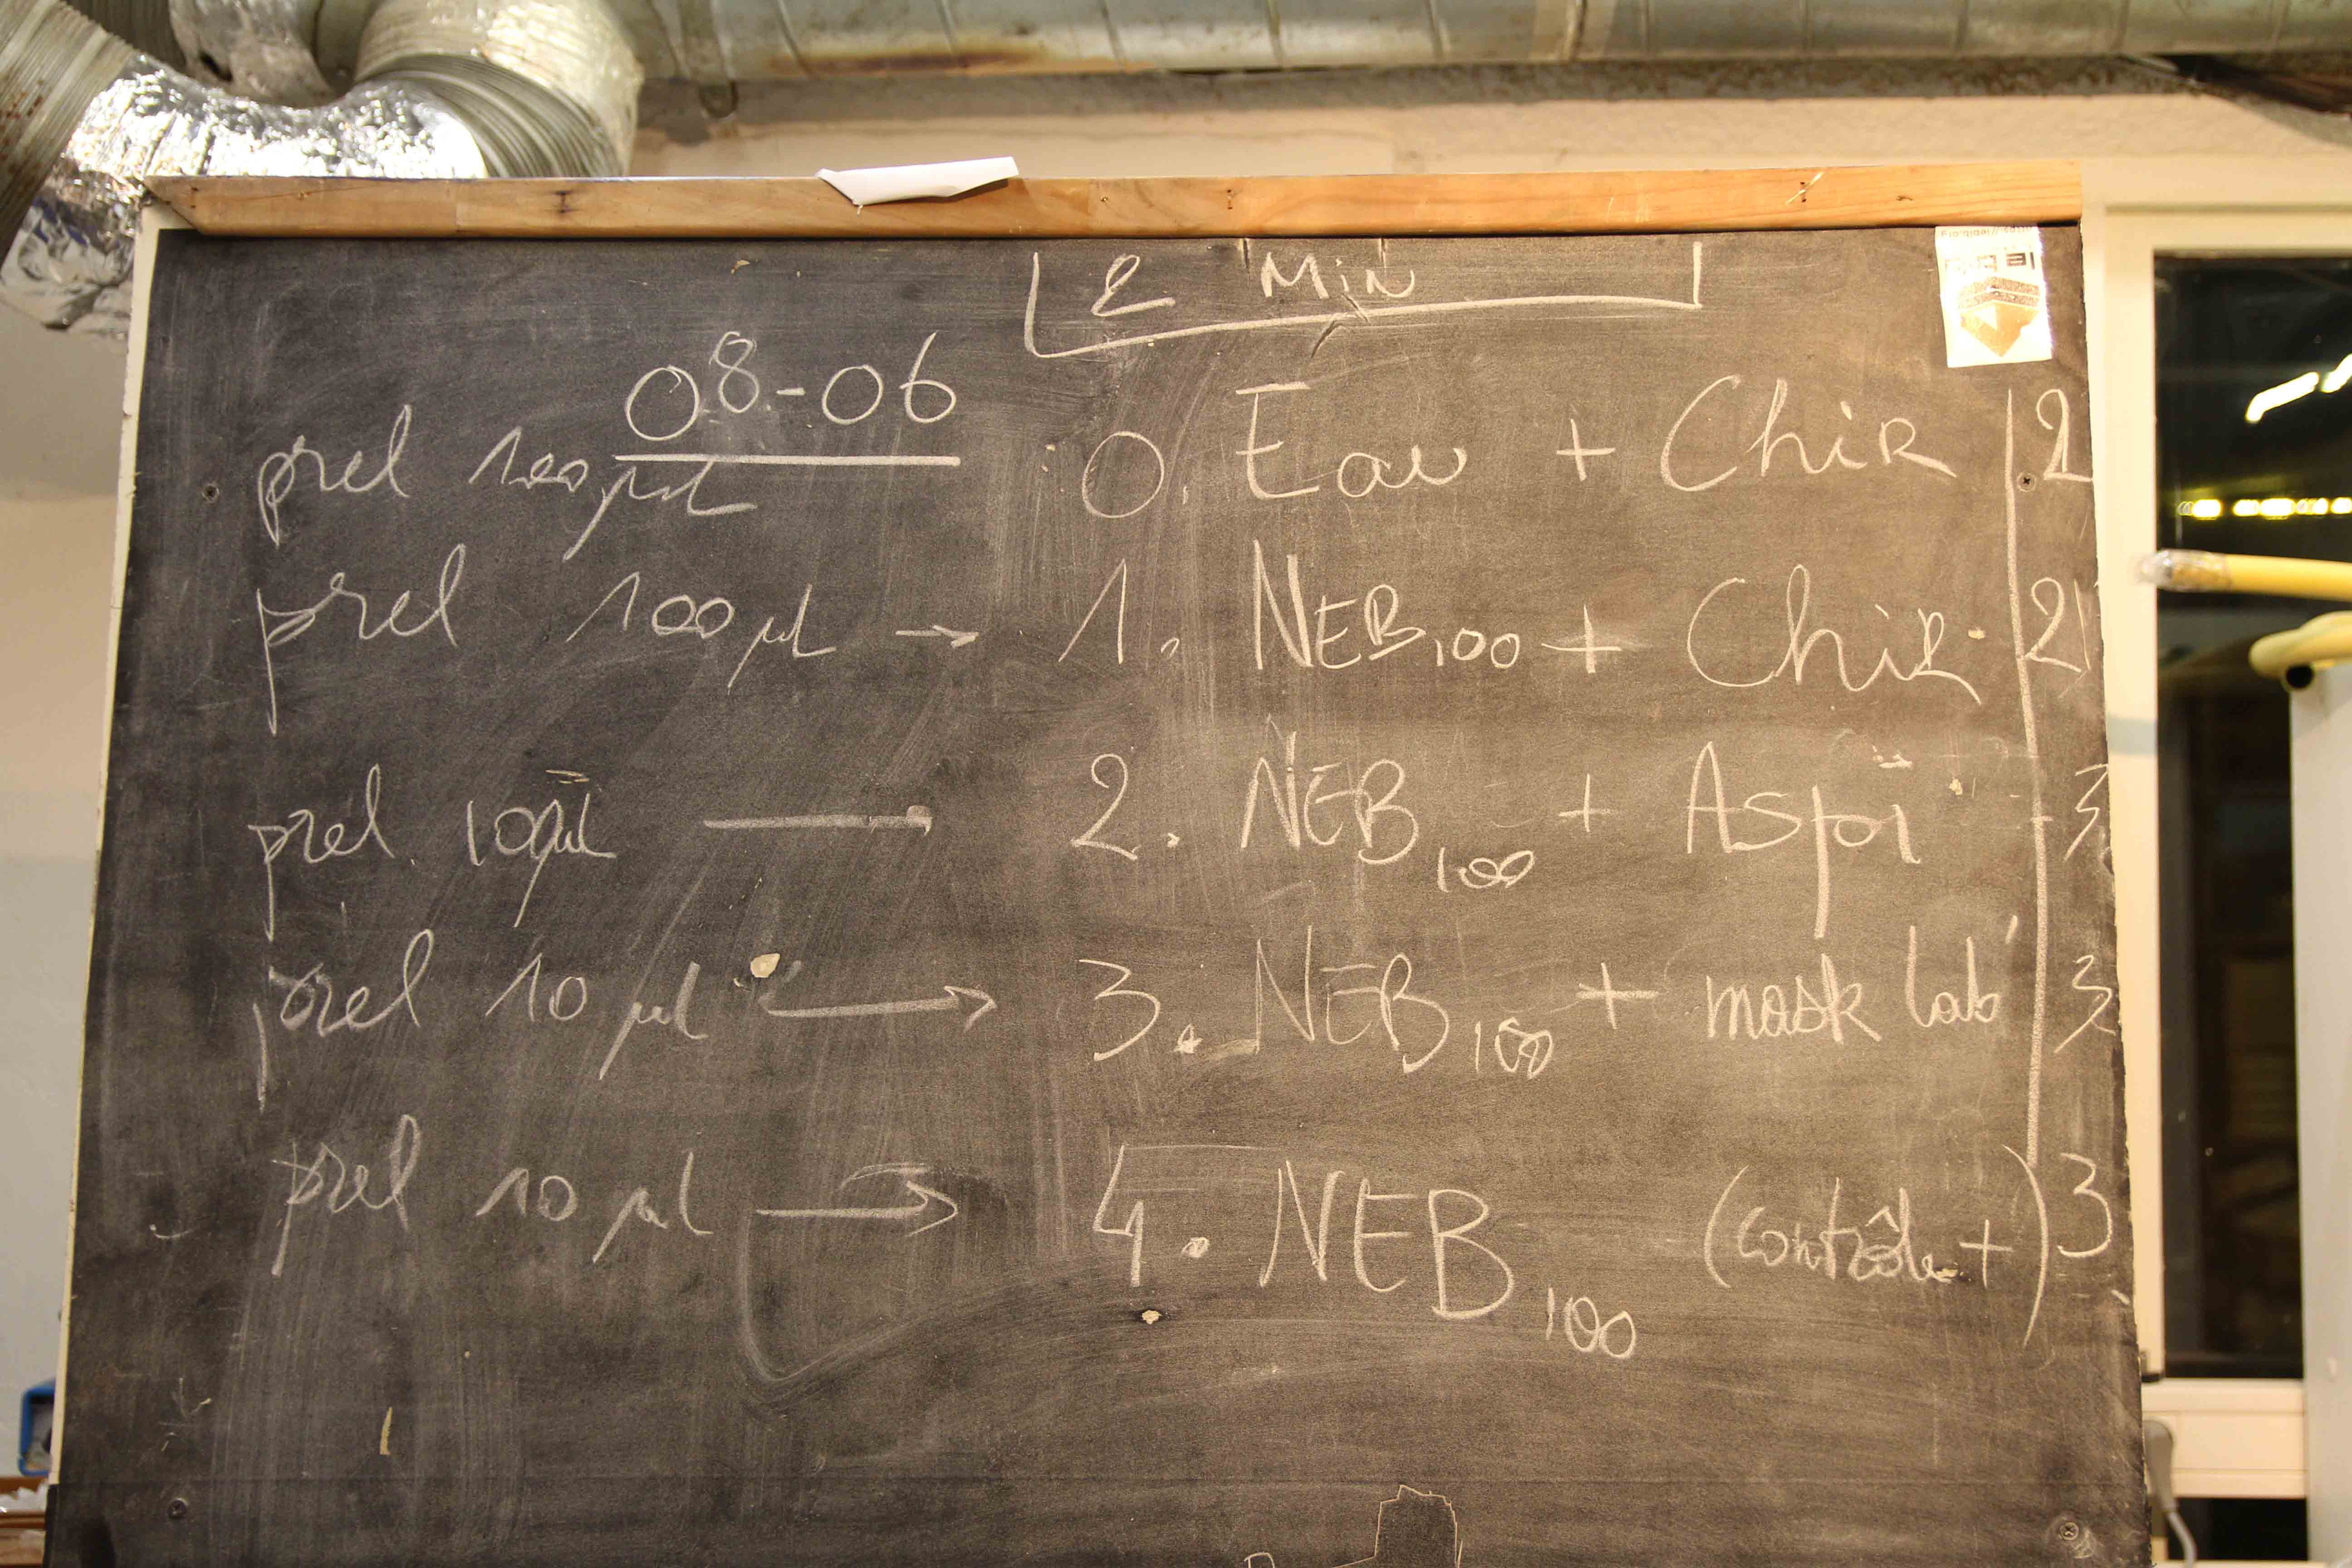 2 Min
08-06
prel 100 µl 0. Eau + Chir 2
prel 100 µl → 1. NEB100 + Chir 2
prel 10 µl — 2. NEB100 + Aspi 3
prel 10 µl → 3. NEB100 + mask lab 3
prel 10 µl → 4. NEB100 (contrôle +) 3